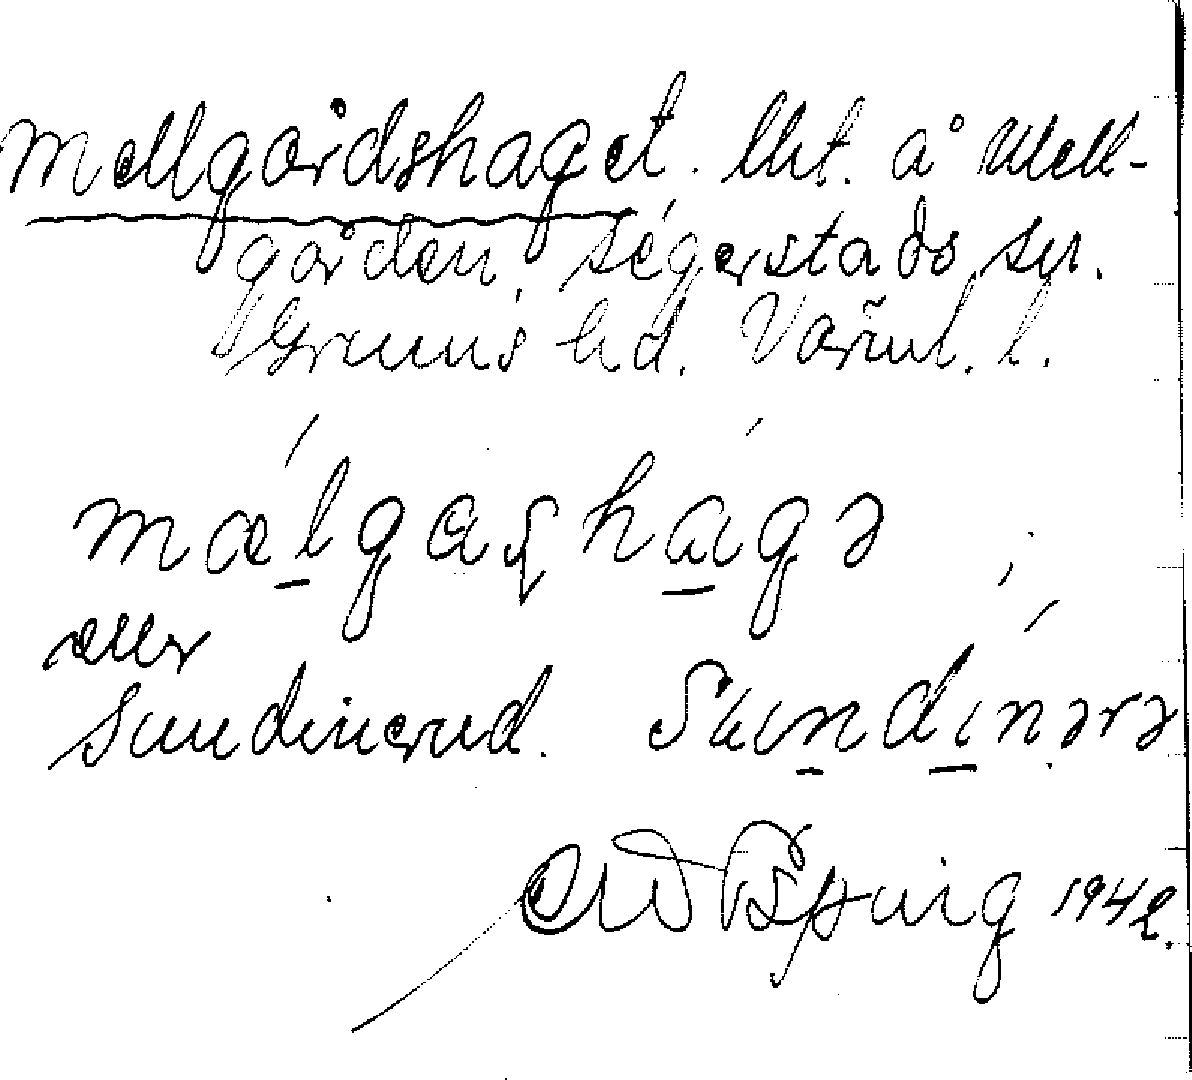 Mellgårdshaget. lht. å Mell-
gården, Segerstads sn.
Grums hd. Värml. l.
mælgaʂhagə ;
eller
Sundinerud. Sundinərə
1942.